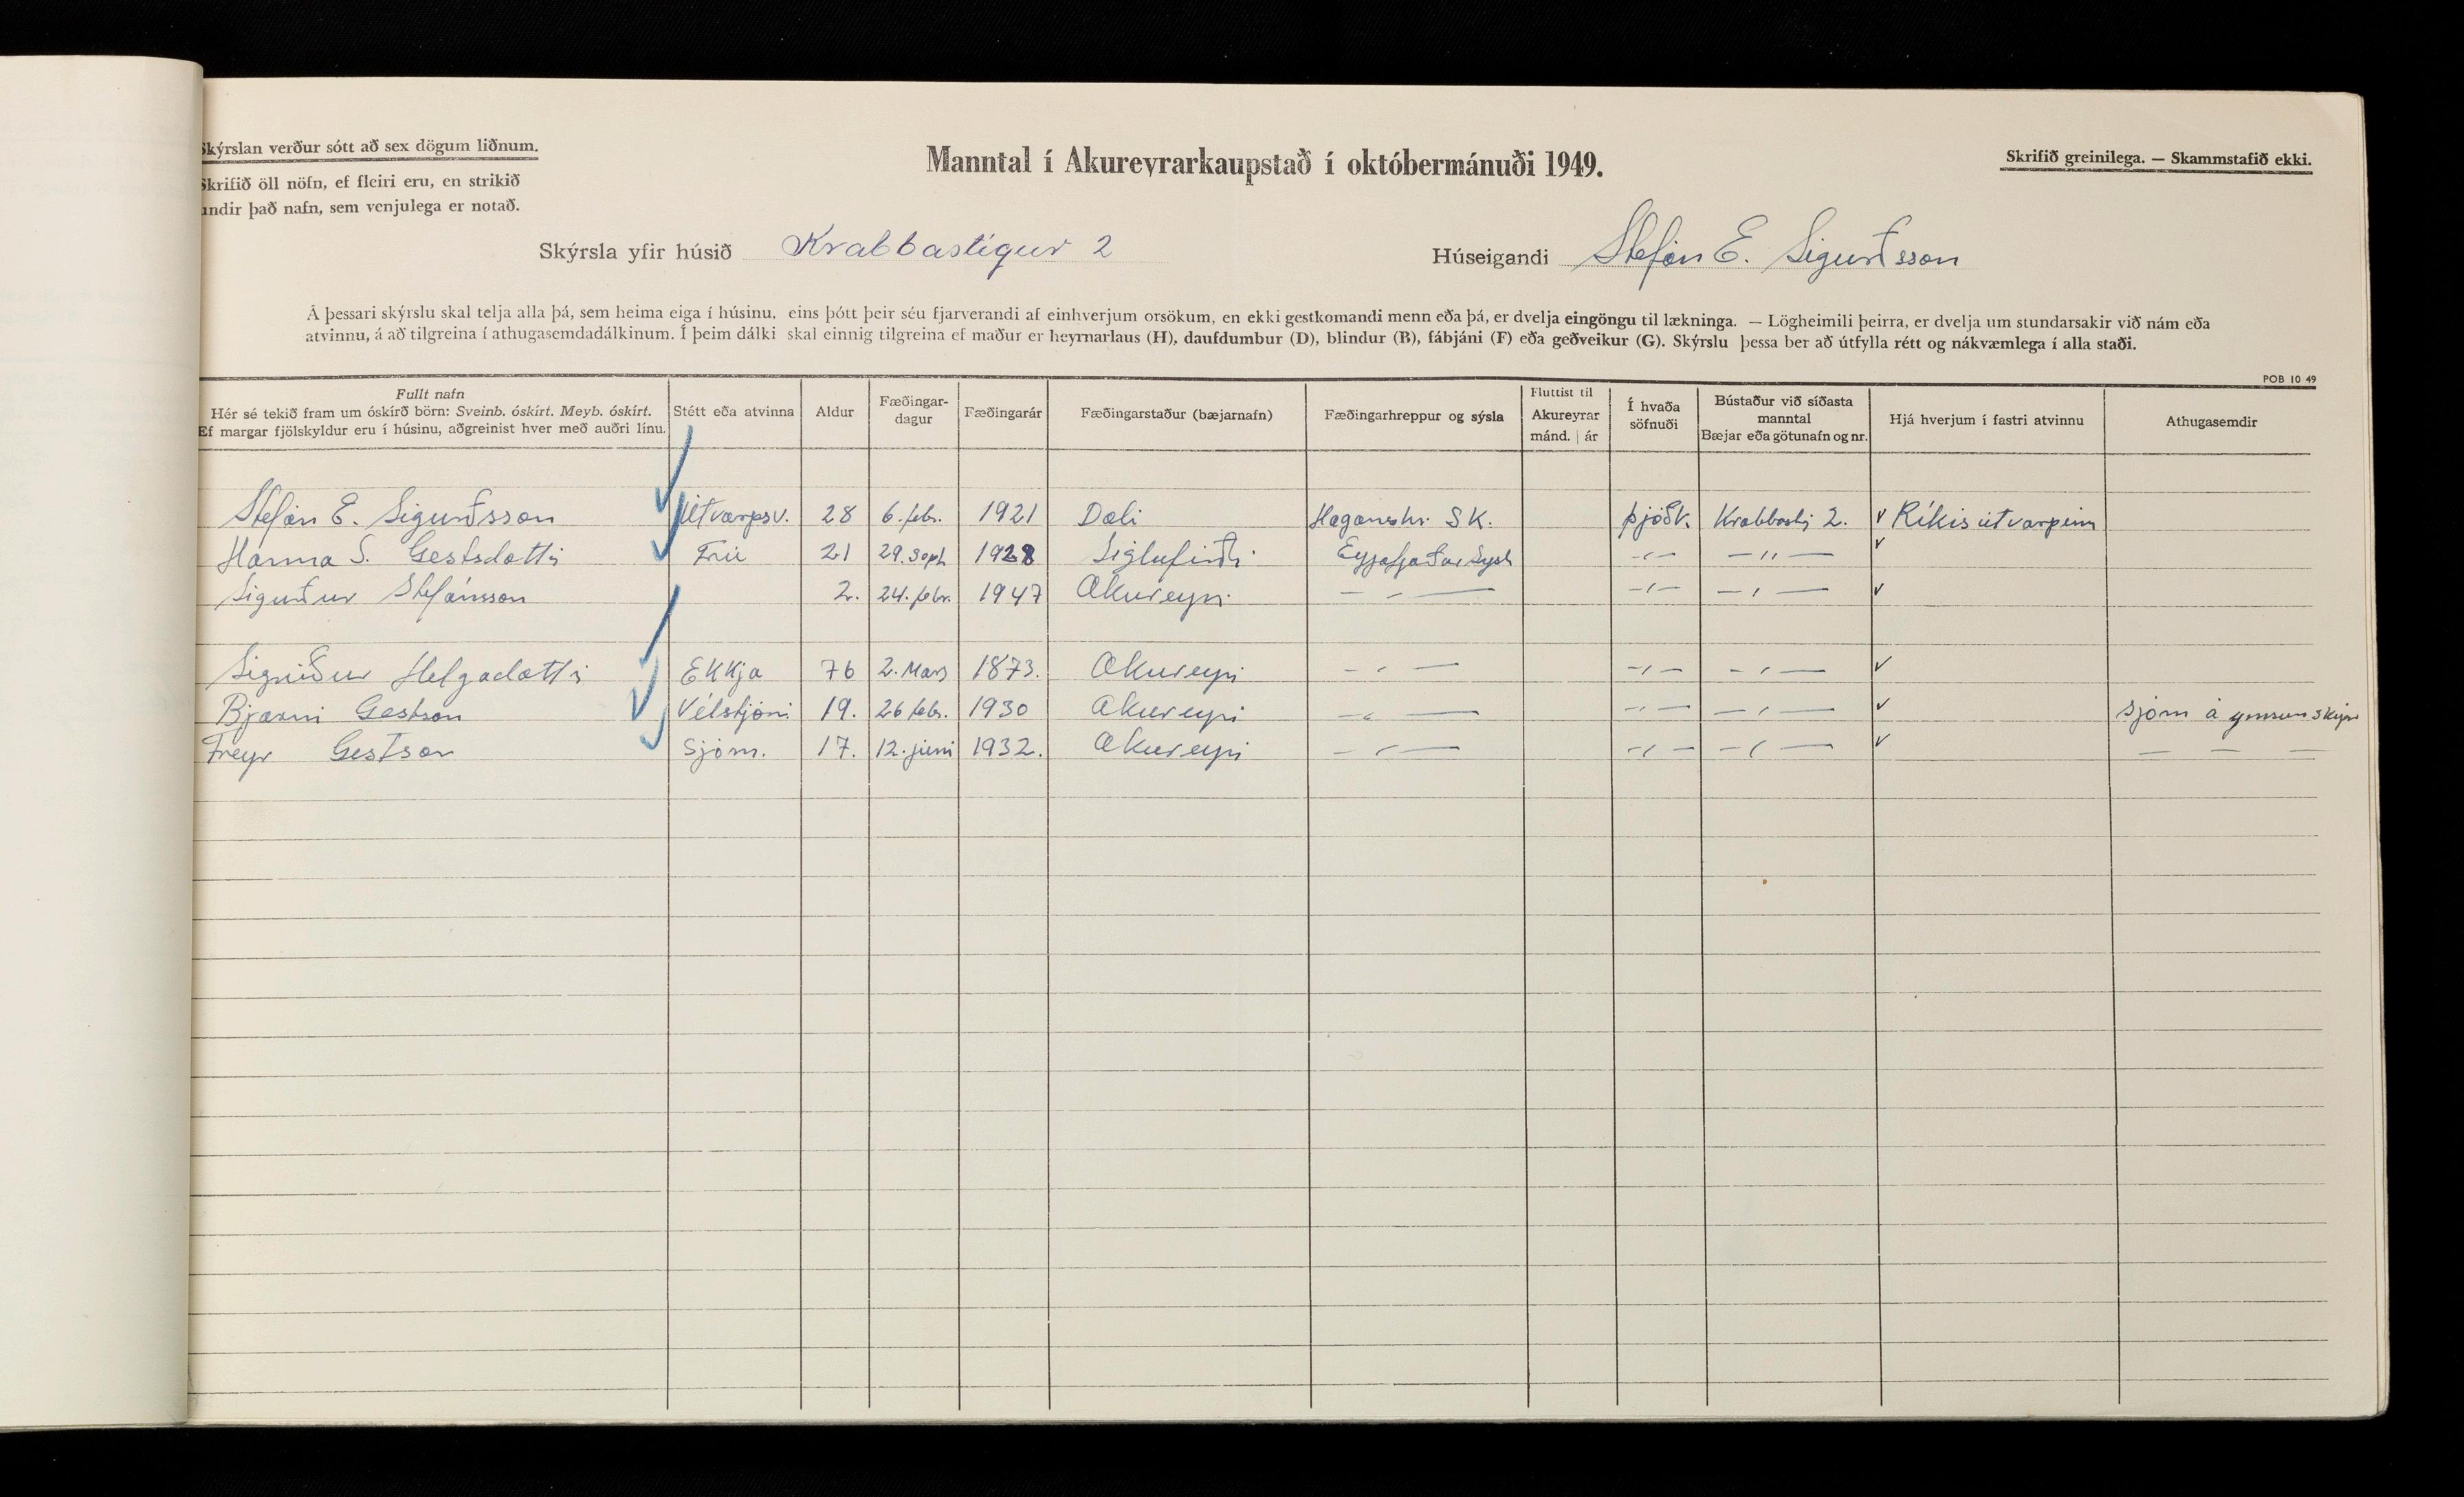 Skýrslan verður sótt að sex dögum liðnum.
Skrifið öll nöfn, ef fleiri eru, en strikið
undir það nafn, sem venjulega er notað.
Manntal í Akureyrarkaupstað í októbermánuði 1949.
Skrifið greinilega. — Skammstafið ekki.
Skýrsla yfir húsið Krabbastígur 2
Húseigandi Stefán E. Sigurðsson
Á þessari skýrslu skal telja alla þá, sem heima eiga í húsinu, eins þótt þeir séu fjarverandi af einhverjum orsökum, en ekki gestkomandi menn eða þá, er dvelja eingöngu til lækninga. — Lögheimili þeirra, er dvelja um stundarsakir við nám eða
atvinnu, á að tilgreina í athugasemdadálkinum. Í þeim dálki skal einnig tilgreina ef maður er heyrnarlaus (H), daufdumbur (D), blindur (B), fábjáni (F) eða geðveikur (G). Skýrslu þessa ber að útfylla rétt og nákvæmlega í alla staði.
POB 10 49
Fullt nafn
Hér sé tekið fram um óskírð börn: Sveinb. óskírt. Meyb. óskírt.
Ef margar fjölskyldur eru í húsinu, aðgreinist hver með auðri línu.
Stétt eða atvinna
Aldur
Fæðingar-
dagur
Fæðingarár
Fæðingarstaður (bæjarnafn)
Fæðingarhreppur og sýsla
Fluttist til
Akureyrar
mánd. | ár
Í hvaða
söfnuði
Bústaður við síðasta
manntal
Bæjar eða götunafn og nr.
Hjá hverjum í fastri atvinnu
Athugasemdir
Stefán E. Sigurðsson Útvarpsv. 28 6. febr. 1921 Dali Haganeshr. SK. þjóðk. Krabbast. 2. v Ríkisútvarpinu
Hanna S. Gestsdóttir Frú 21 29. Sept 1928 Siglufirði Eyjafjaðar Sysl -"- -"- v
Sigurður Stefánsson 2. 24. febr. 1947 Akureyri - - -"- -"- v
Sigríður Helgadóttir Ekkja 76 2. Mars 1873. Akureyri -"- -"- -"- v
Bjarni Gestson Vélstjóri 19. 26 febr. 1930 Akureyri -"- -"- -"- v Sjóm á ymsum skipu
Freyr Gestson Sjóm. 17. 12. júni 1932. Akureyri -"- -"- -"- v — — —